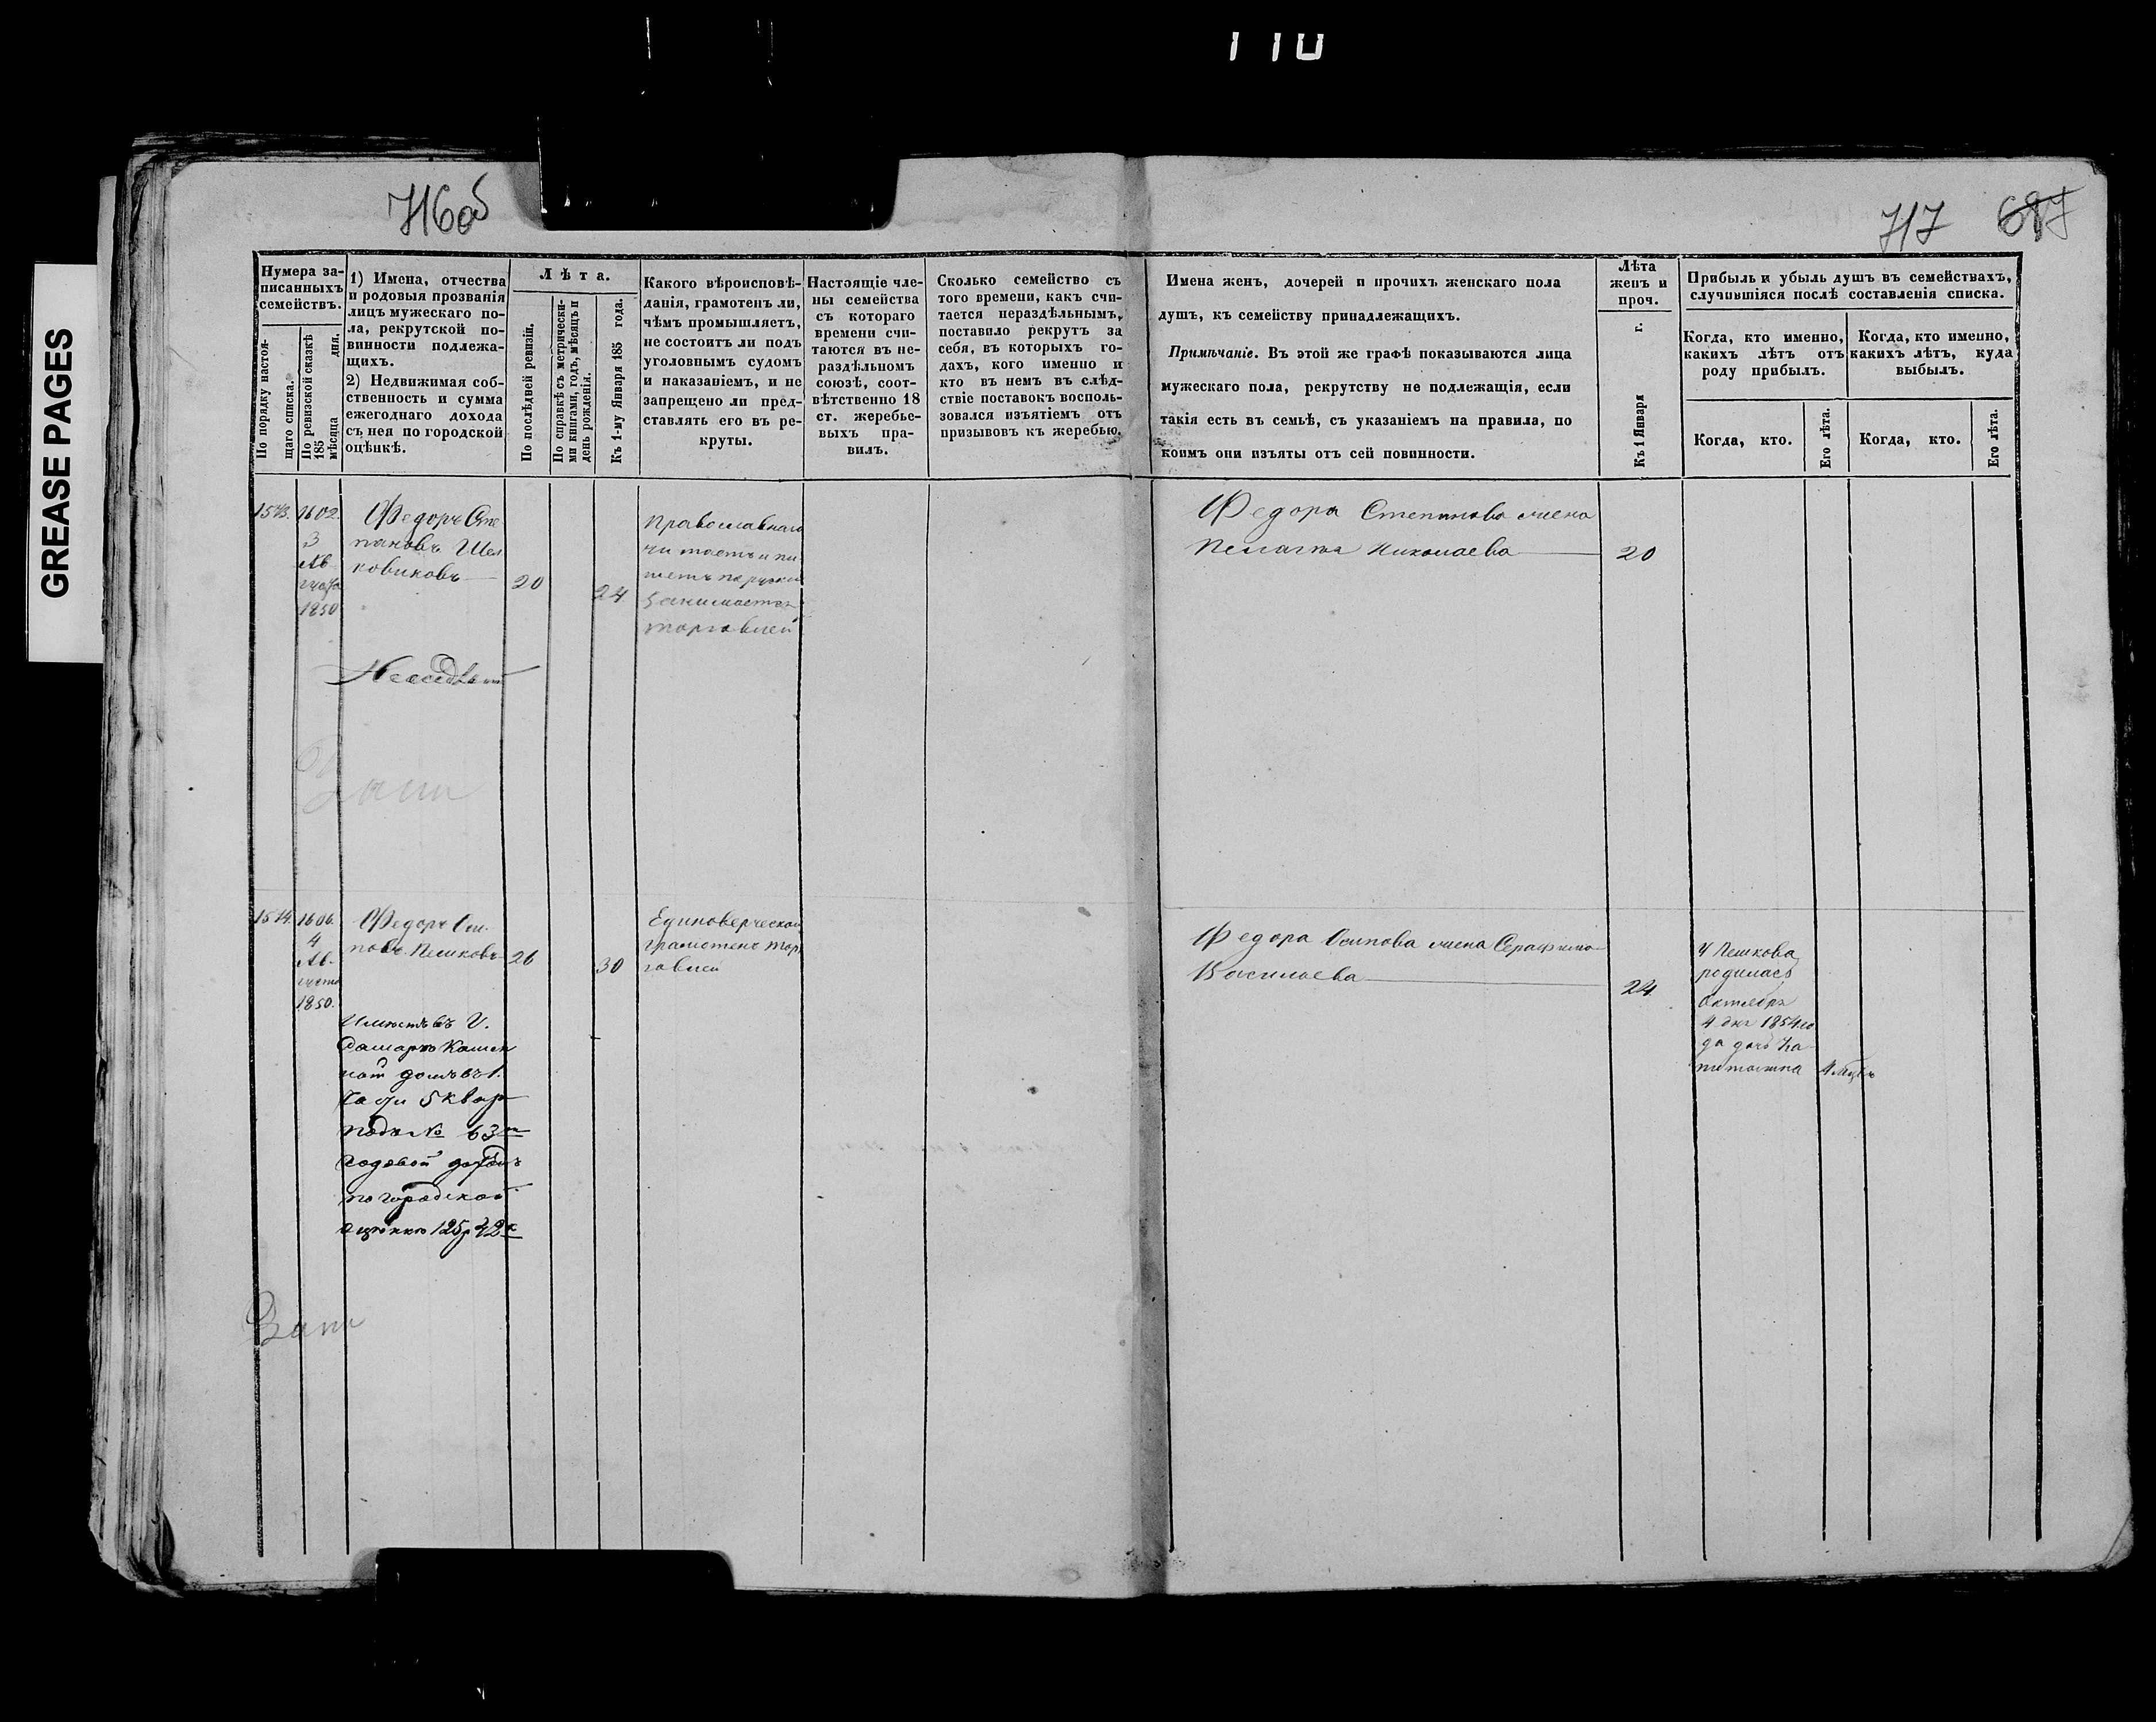 110
GREASE PAGES
716об
717 687
Нумера записанныхъ семействъ.
По порядку настоящаго списка.
По ревизской сказкѣ 185 мѣсяца дня.
1) Имена, отчества
и родовыя прозванія
лицъ мужескаго по-
ла, рекрутской по-
винности подлежа-
щихъ.
2) Недвижимая соб-
ственность и сумма
ежегоднаго дохода
съ нея по городской
оцѣнкѣ.
Лѣта.
По послѣдней ревизіи.
По справкѣ съ метрически-
ми книгами, годъ, мѣсяцъ и
день рожденія.
Къ 1-му Января 185 года.
Какого вѣроисповѣ-
данія, грамотенъ ли,
чѣмъ промышляетъ,
не состоитъ ли подъ
уголовнымъ судомъ
и наказаніемъ, и не
запрещено ли пред-
ставлять его въ ре-
круты.
Настоящіе чле-
ны семейства
съ котораго
времени счи-
таются въ не-
раздѣльномъ
союзѣ, соот-
вѣтственно 18
ст. жеребье-
выхъ пра-
вилъ.
Сколько семейство съ
того времени, какъ счи-
тается нераздѣльнымъ,
поставило рекрутъ за
себя, въ которыхъ го-
дахъ, кого именно и
кто въ немъ въ слѣд-
ствіе поставокъ восполь-
зовался изъятіемъ отъ
призывовъ къ жеребью.
Имена женъ, дочерей и прочихъ женскаго пола
душъ, къ семейству принадлежащихъ.
Примѣчаніе. Въ этой же графѣ показываются лица
мужескаго пола, рекрутству не подлежащія, если
такія есть въ семьѣ, съ указаніемъ на правила, по
коимъ они изъяты отъ сей повинности.
Лѣта
женъ и
проч.
Къ 1 Января г.
Прибыль и убыль душъ въ семействахъ,
случившіяся послѣ составленія списка.
Когда, кто именно,
какихъ лѣтъ отъ
роду прибылъ.
Когда, кто именно,
какихъ лѣтъ, куда
выбылъ.
Когда, кто.
Его лѣта.
Когда, кто.
Его лѣта.
1573. 1602.
3
Ав
густа
1850
Федоръ Сте
пановъ Шел
ковиковъ
20
24
Православнаго
читаетъ и пи
шетъ порусски
Занимается
торговлей
Федора Степанова жена
Пелагея Николаева
20
1574. 1606.
4
Ав-
густа
1850.
Федоръ Оси-
повъ Пешковъ
26
30
Единоверческой
грамотенъ тор
говлей
Имѣетъ въ Г.
Самарѣ Камен
ной домъ въ 1.
Части 5 квар
подъ № 63м
годовой доходъ
по городской
оцѣнкѣ 125р 42к
Федора Осипова жена Серафима
Васильева
24
У Пешкова
родилась
Октября
4 дня 1854 го
да дочь Ка
питолина